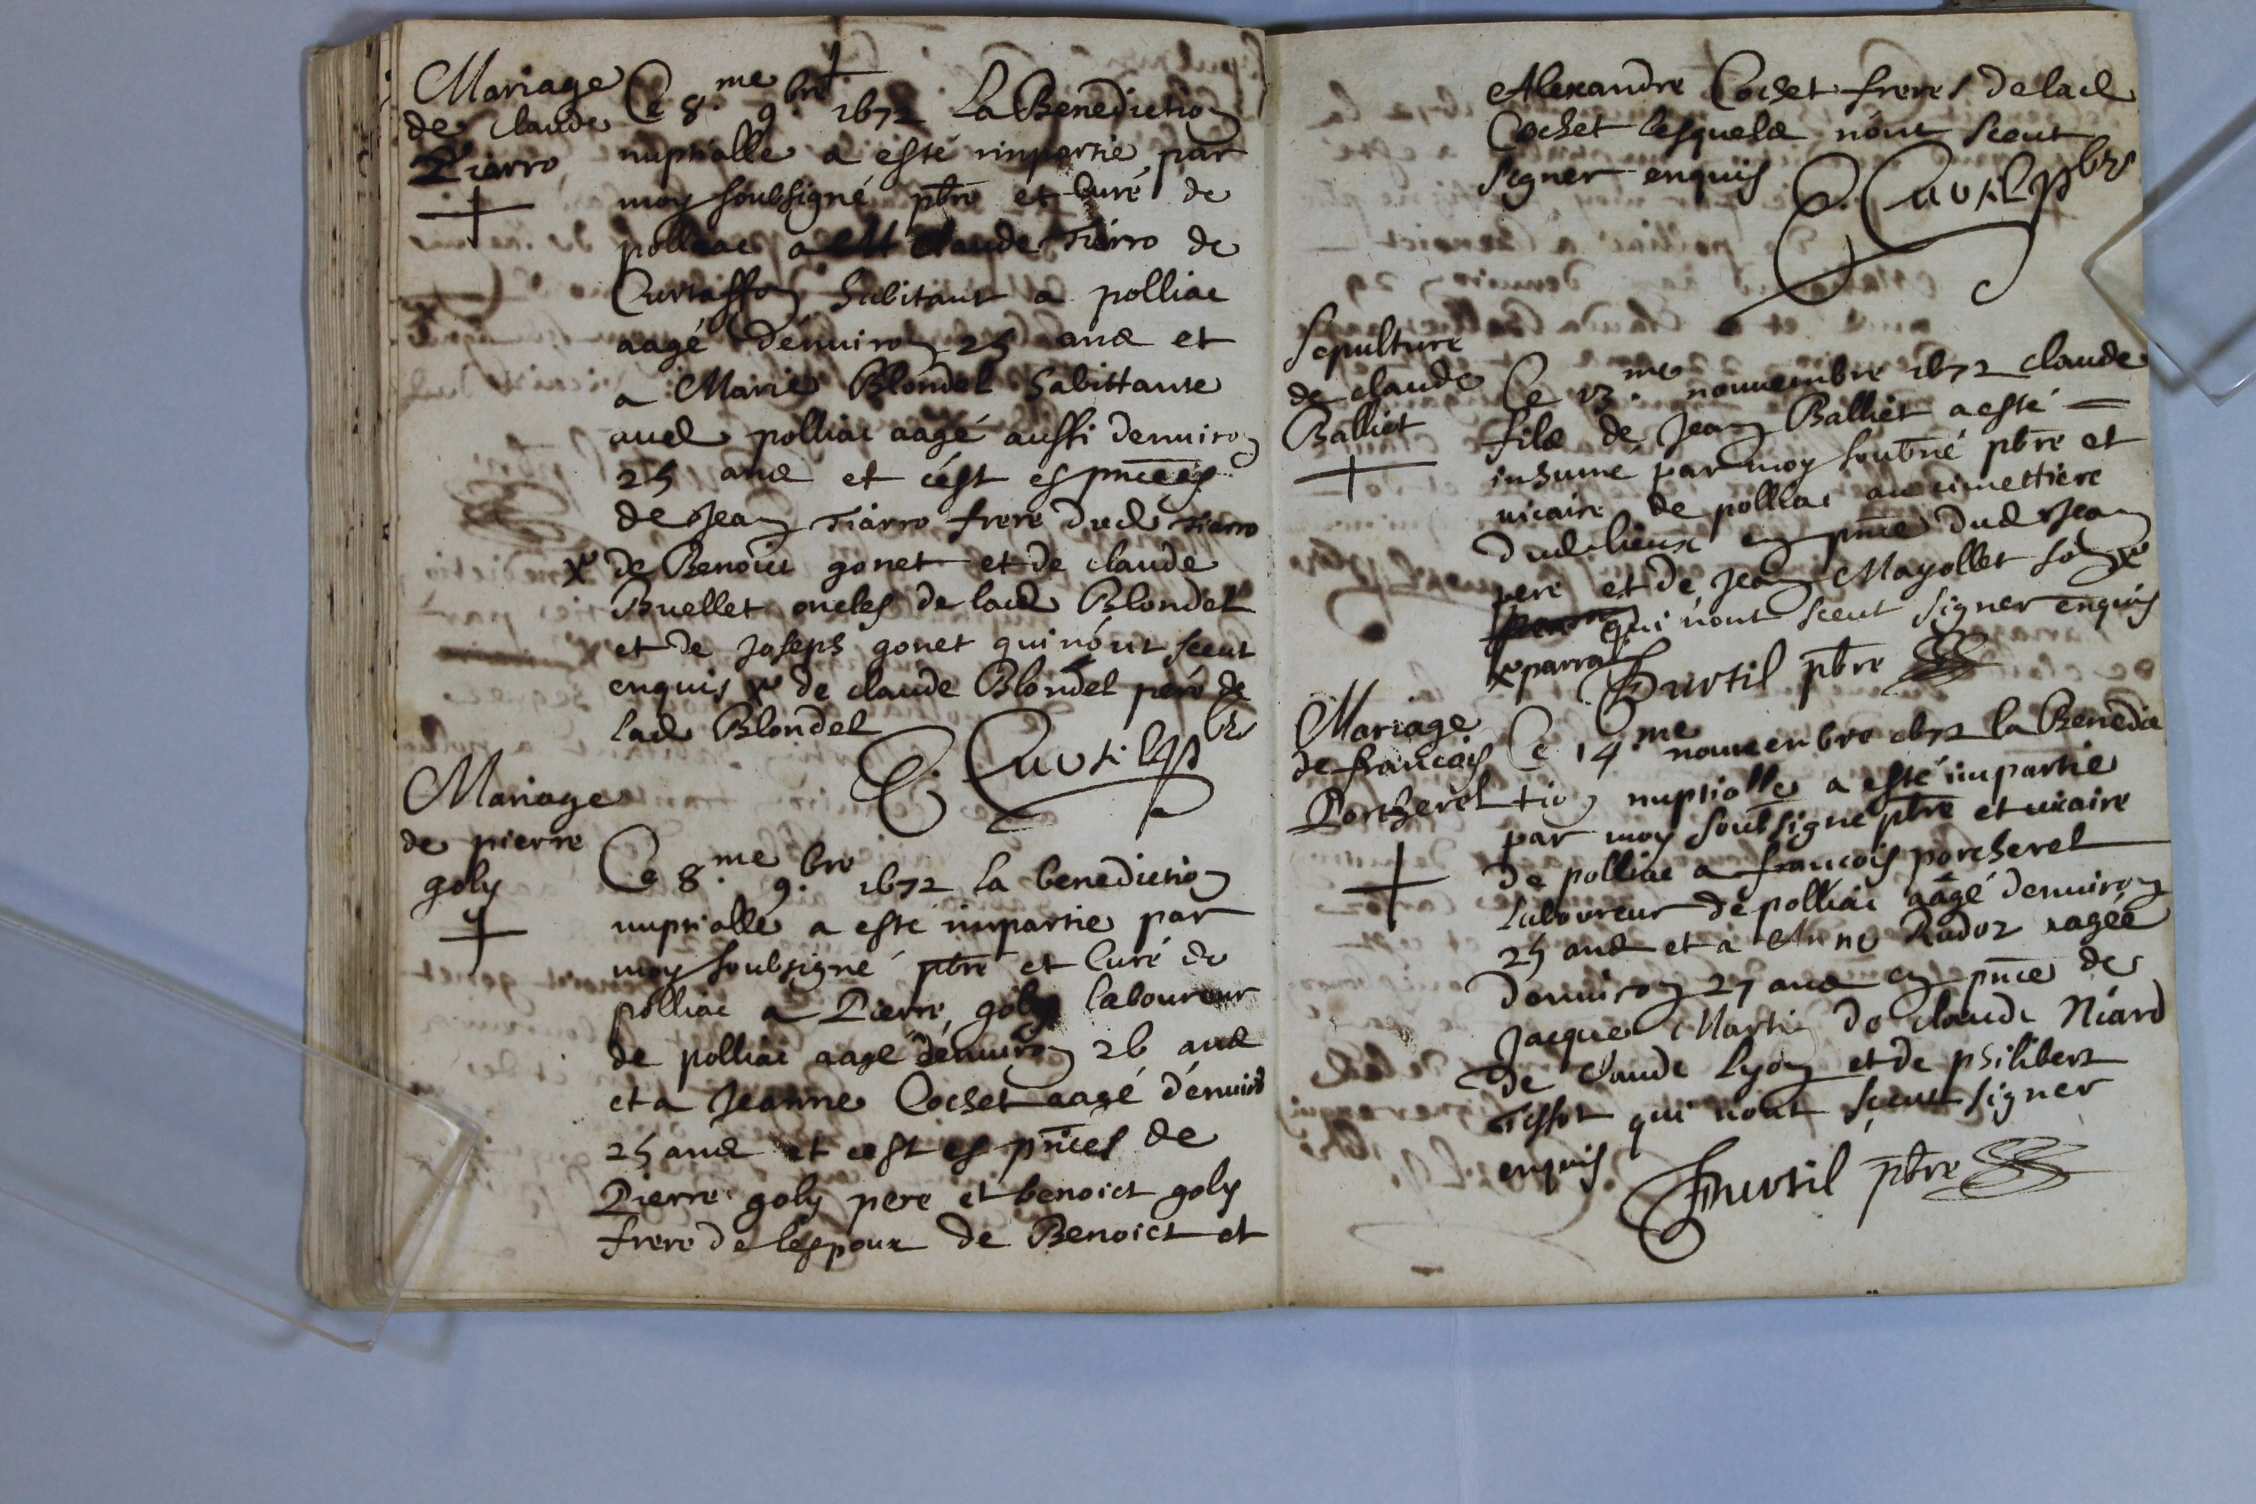 Mariage
de Claude
Tiarro
Ce 8.me 9.bre 1672 La Benediction
nuptialle a esté impartie par
moy soubsigné pbre et Curé de
polliac a Claude Tiarro de
Curtaffon habitant a polliac
aagé denuiron 25 ans et
a Marie Blondel habittante
aud polliac aagé aussi denuiron
25 ans et c'est es pnces
de Jean Tiarro frere dud Tiarro
de Benoict gonet et de claude
Buellet oncles de lad Blondel
et de Joseph gonet qui n'ont sceut
enquis de claude Blondel pere de
lad Blondel
C. Curtil pbre
Mariage
de pierre
goly
Ce 8.me 9.bre 1672 la benediction
nuptialle a esté impartie par
moy soubsigné pbre et Curé de
polliac a Pierre goly laboureur
de polliac aagé denuiron 26 ans
et a Jeanne Cochet aagé d'enuirō
25 ans et cest es pnces de
Pierre goly pere et benoict goly
frere de lespoux de Benoict et
Alexandre Cochet freres de lad
Cochet lesquels n'ont sceut
signer enquis
C. Curtil pbre
Sepulture
de claude
Balliet
Ce 13.me nouuembre 1672 claude
fils de Jean Balliet a esté
inhumé par moy soubné pbre et
uicaire de polliac au cimettiere
dud lieux en pnce dud Jean
pere et de Jean Mayollet son
qui n'ont sceut signer enquis
parrain
Curtil pbre
Mariage
de francois
Porcherel
Ce 14.me nouuembre 1672 la Benedic
tion nuptialle a esté impartie
par moy soubsigné pbre et uicaire
de polliac a francois porcherel
laboureur de polliac aagé denuiron
25 ans et a Anne Rudoz aagée
denuiron 27 ans en pnce de
Jacques Martin de claude Niard
de Claude Lyon et de philibert
Tissot qui n'ont sceut signer
enquis
Curtil pbre